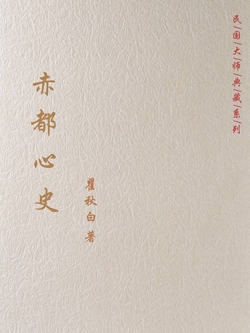 民/国/大/师/典/藏/系/列
赤都心史
瞿秋白 著